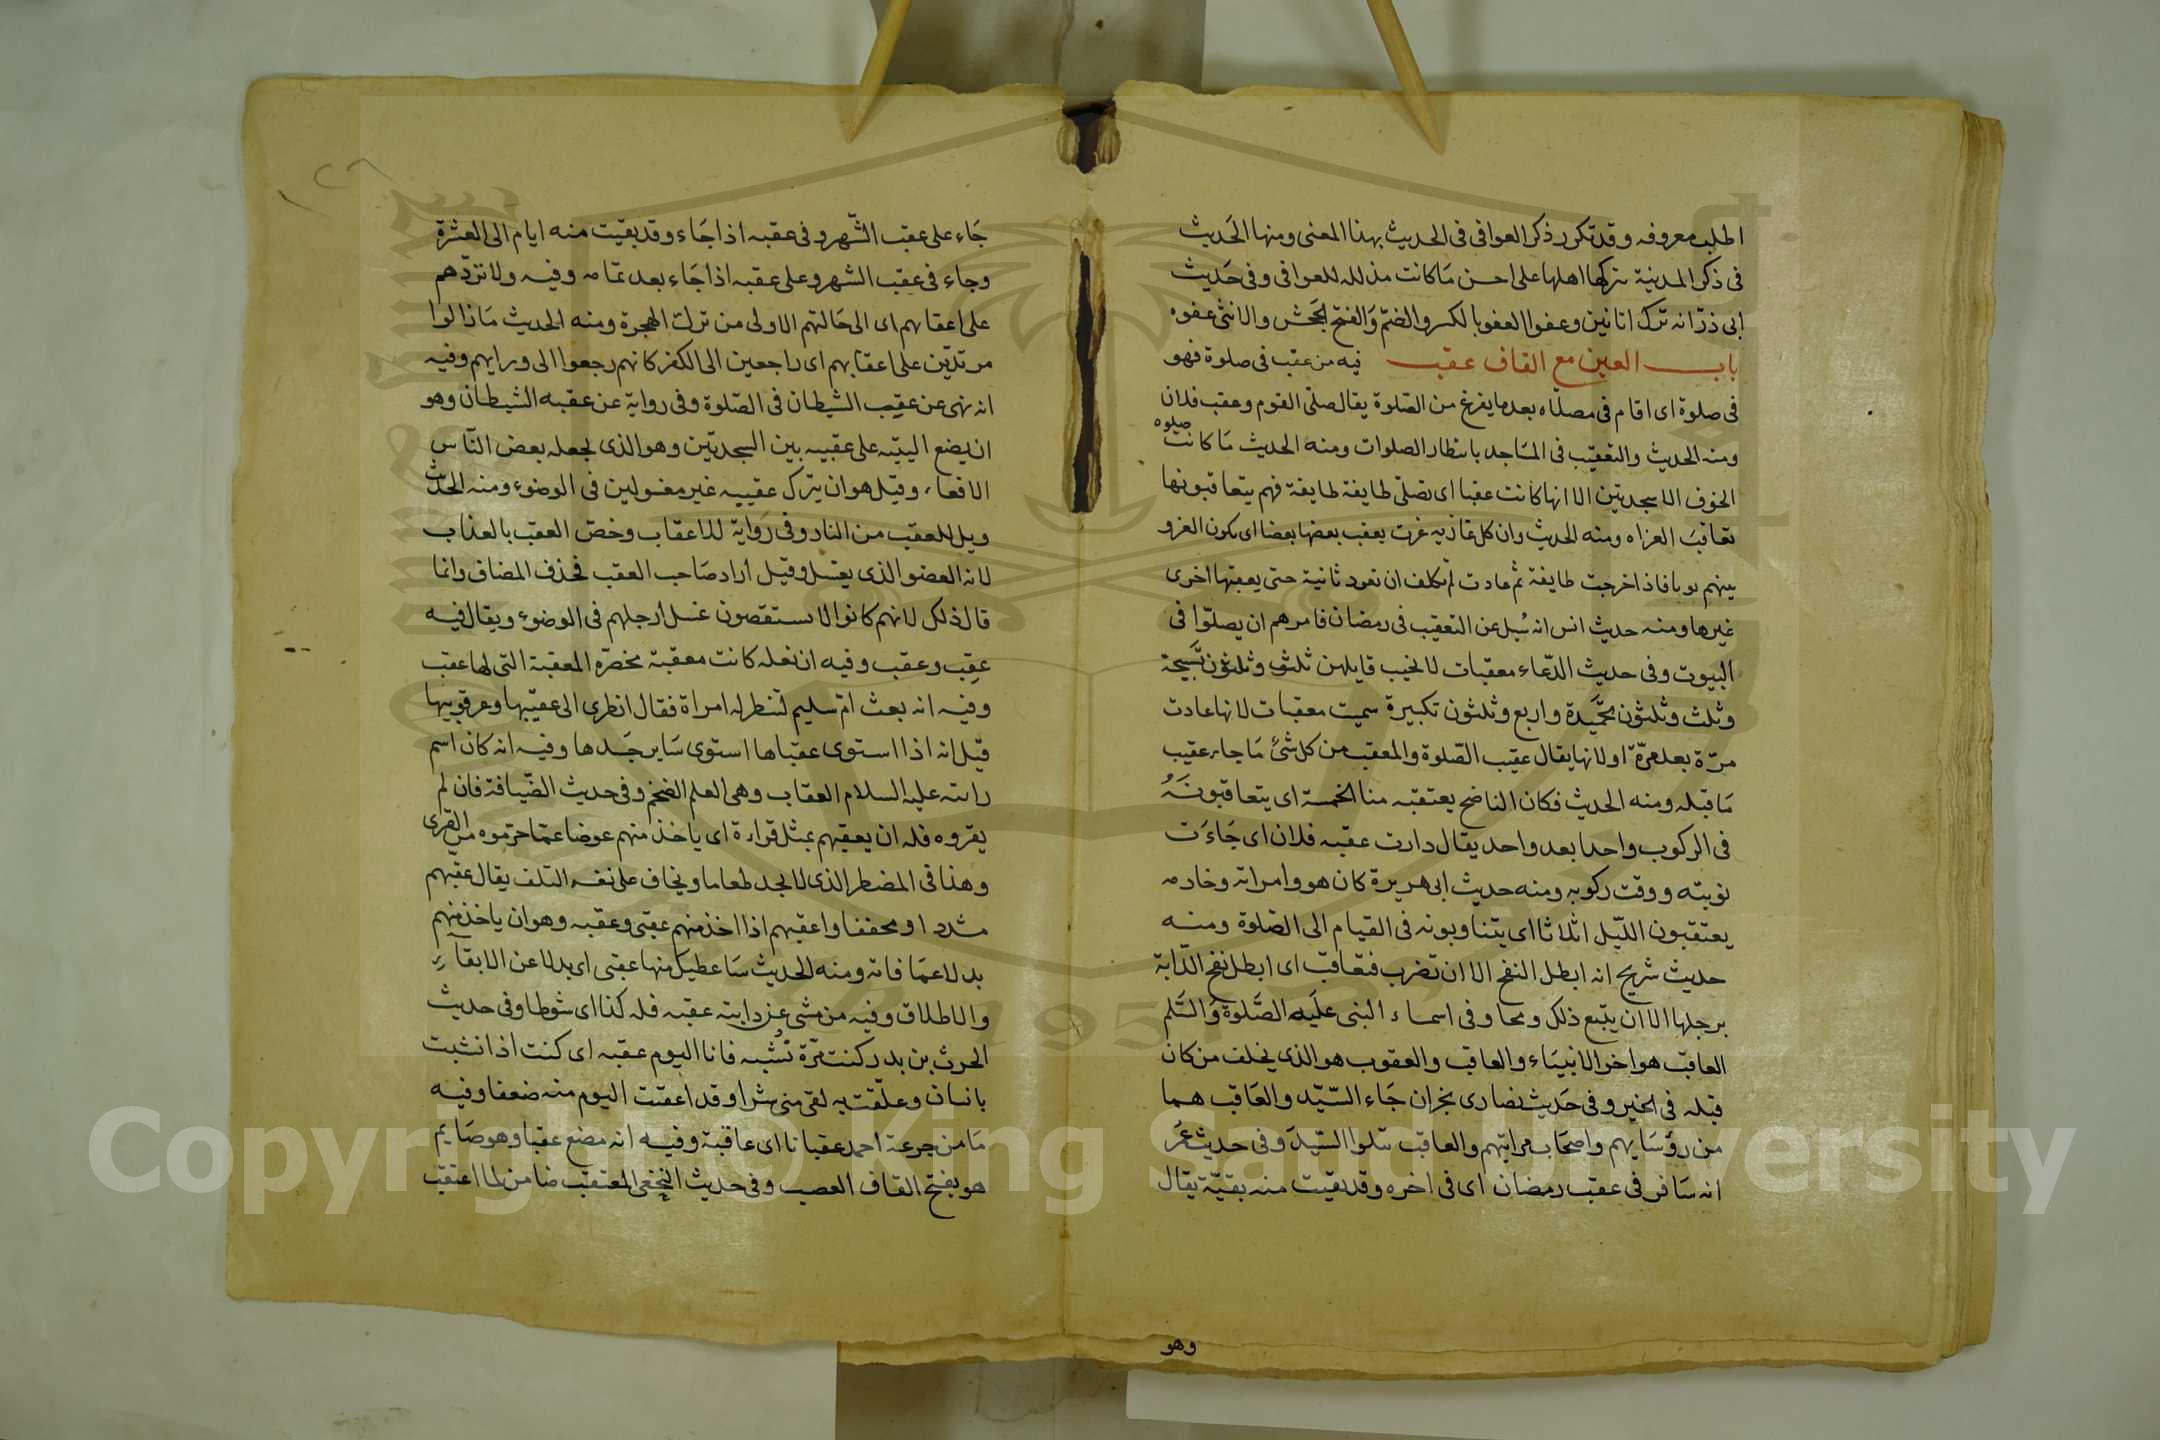 اطلب معروفه وقد تكرر ذكر العوافى فى الحديث بهذا المعنى ومنها الحَديث
فى ذكر المدينة يتركها اهلها على احسن مَا كانت مذلله للعوافى وفى حَديث
ابى ذرّ انه ترك اتانين وعفوا العفو بالكسر والضمّ وَالفتح الجحش والانثى عفوه
باب العين مع القاف عقب فيه من عقب فى صلوة فهو
فى صلوة اى اقام فى مصلّاه بعد ما يفرغ من الصّلوة يقال صلّى القوم وعقب فلان
ومنه الحديث والتعقيّب فى المسَاجد بانتظار الصلوات ومنه الحديث مَا كانت صلوه
الخوف الا سجدتين الا انها كانت عقبا اى تصلّى طايفة طايفة فهم يتعاقبونها
تعاقبَ الغزاه ومنه الحديث وان كل غازيه غزت يعقب بعضها بعضا اى يكون الغزو
بينهم نوبا فاذا خرجت طايفة ثم عادت لم تكلف ان تعود ثانية حتى يعقبها اخرى
غيرها ومنه حديث انس انه سُيل عن التعقيب فى رمضان فامرهم ان يصلّوا فى
البيوت وفى حديث الدّعاء معقبات لا يخيب قايلهن ثلث وثلثون تسَبيحة
وثلث وثلثون تحَمَيدة واربع وثلثون تكبيرة سميت معقبات لانها عادت
مرّة بعد مرّة او لانها يقال عقيب الصّلوة والمعقب من كل شئ مَا جاء عقيب
مَا قبله ومنه الحديث فكان الناضح يعتقبه منا الخمسة اى يتعاقبونَهُ
فى الركوب واحدا بعد واحد يقال دارت عقبه فلان اى جَاءَت
نوبته ووقت ركوبه ومنه حديث ابى هريرة كان هو وامراته وخادمه
يعتقبون الليّل اثلاثا اى يتناوبونه فى القيام الى الصّلوة ومنه
حديث شريح انه ابطل النفح الا ان تضرب فتعاقب اى ابطل نفح الدّابة
برجلها الا ان يتبع ذلك رمحا وفى اسماء النبى علَيه الصَّلوة وَالسَّلم
العاقب هو اخر الانبيَاء والعاقب والعقوب هو الذى يخلف من كان
قبله فى الخير وفى حَديث نصارى نجران جَاء السّيّد والعَاقب هما
من رؤسَايهم واصحَاب مراتبهم والعاقب يتلوا السّيّدَ وفى حديث عمَر
انه سَافر فى عقب رمضان اى فى اخره وقد بقيت منه بقيّة يقال
وهو
جَاء على عقب الشّهر وفى عقبه اذا جَاء وقد بقيت منه ايام الى العشرة
وجاء فى عقب الشهر وعلى عقبه اذا جَاء بعد تمامه وفيه ولا تردّهم
على اعقابهم اى الى حَالتهم الاولى من ترك الهجرة ومنه الحديث مَا زالوا
مرتدّين على اعقابهم اى راجعين الى الكفر كانهم رجعوا الى ورايهم وفيه
انه نهى عن عقِب الشيطان فى الصّلوة وفى رواية عن عقبه الشيطان وهو
ان يضع اليتيه على عقبيه بين السجدتين وهو الذى يجعله بعض النّاس
الاقعاء وقيل هو ان يترك عقبيه غير مغسولين فى الوضوء ومنه الحديث
ويل للعقب من النار وفى رَواية للاعقاب وخصّ العقب بالعذاب
لانه العضو الذى يغسل وقيل اراد صَاحب العقب فحذف المضاف وانما
قال ذلك لانهم كانوا لا يستقصون غسل ارجلهم فى الوضوء ويقال فيه
عقِب وعقب وفيه ان نعله كانت معقبة مخصّره المعقبة التى لها عقب
وفيه انه بعث امّ سليم لتنظر له امراة فقال انظرى الى عقيبها وعرقوبيها
قيل انه اذا استوى عقباها استوى سَاير جَسدها وفيه انه كان اسم
رايته عليه السلام العقاب وهى العلم الضخم وفى حديث الضّيافة فان لم
يقروه فله ان يعقبهم بمثل قراءة اى ياخذ منهم عوضا عمّا حرّموه من القرى
وهذا فى المضطر الذى لا يجد طعاما ويخاف على نفسه التلف يقال عقبهم
مشددا ومخففا واعقبهم اذا اخذ منهم عقبى وعقبه وهو ان ياخذ منهم
بدلا عمّا فاته ومنه الحديث سَاعطيك منها عقبى اى بدلا عن الابقآءِ
والاطلاق وفيه من مشى عن دابته عقبه فله كذا اى شوطا وفى حديث
الحرث بن بدر كنت مرّة نُشبه فانا اليوم عقبه اى كنت اذا نشبت
بانسان وعلّقت به لقى منى شرا وقد اعقبت اليوم منه ضعفا وفيه
مَا من جرعة احمد عقبانا اى عاقبة وفيه انه مضغ عقبا وهو صَايم
هو بفتح القاف العصب وفى حديث النخعى المعتقب ضامن لما اعتقب
Copyright © King Saud University
1957